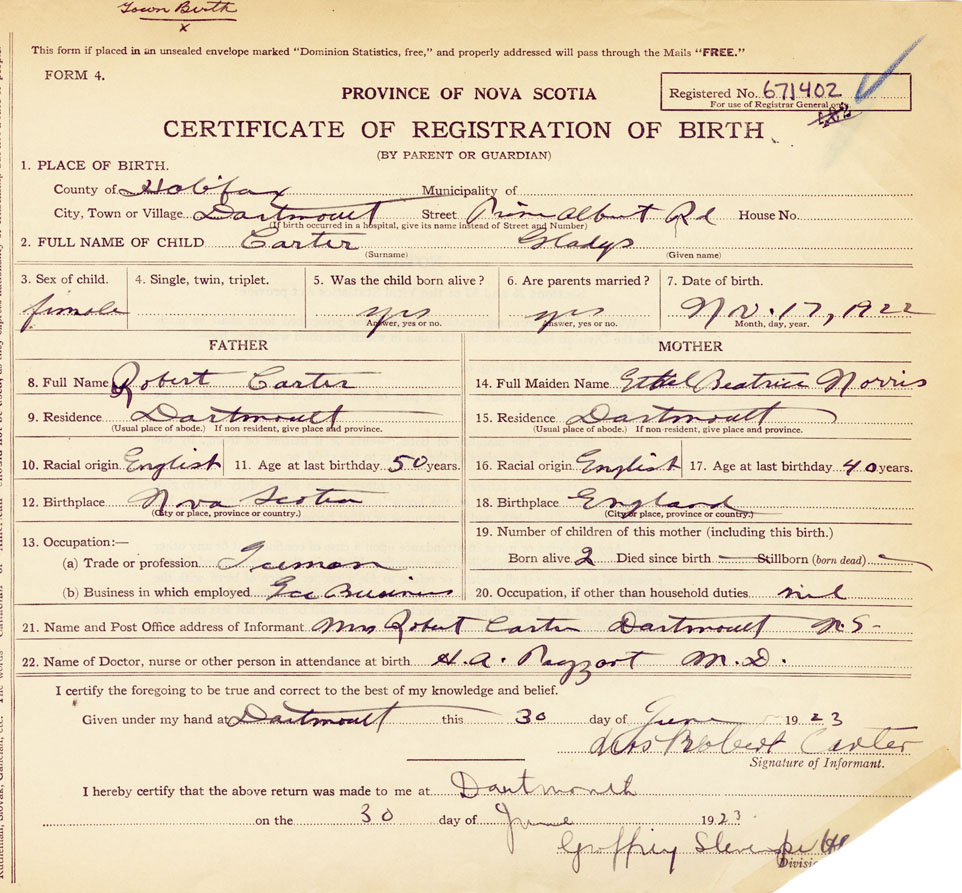 Town Birth
x
This form if placed in an unsealed envelope marked "Dominion Statistics, free," and properly addressed will pass through the Mails "FREE."
FORM 4.
Registered No. 671402
For use of Registrar General only
PROVINCE OF NOVA SCOTIA
CERTIFICATE OF REGISTRATION OF BIRTH
(BY PARENT OR GUARDIAN)
1. PLACE OF BIRTH.
County of Halifax Municipality of
City, Town or Village Dartmouth Street Prince Albert Rd House No.
(If birth occurred in a hospital, give its name instead of Street and Number)
2. FULL NAME OF CHILD Carter Gladys
(Surname) (Given name)
3. Sex of child. 4. Single, twin, triplet. 5. Was the child born alive? 6. Are parents married? 7. Date of birth.
female yes yes Nov. 17, 1922
Answer, yes or no. Answer, yes or no. Month, day, year.
FATHER MOTHER
8. Full Name Robert Carter 14. Full Maiden Name Ethel Beatrice Norris
9. Residence Dartmouth 15. Residence Dartmouth
(Usual place of abode.) If non resident, give place and province. (Usual place of abode.) If non-resident, give place and province.
10. Racial origin English 11. Age at last birthday 50 years. 16. Racial origin English 17. Age at last birthday 40 years.
12. Birthplace Nova Scotia 18. Birthplace England
(City or place, province or country.) (City or place, province or country.)
19. Number of children of this mother (including this birth.)
13. Occupation:—
Born alive 2 Died since birth — Stillborn (born dead) —
(a) Trade or profession Iceman
(b) Business in which employed Ice Business 20. Occupation, if other than household duties nil
21. Name and Post Office address of Informant Mrs Robert Carter Dartmouth N.S-
22. Name of Doctor, nurse or other person in attendance at birth H. A. M. D.
I certify the foregoing to be true and correct to the best of my knowledge and belief.
Given under my hand at Dartmouth this 30 day of June 1923
Mrs Robert Carter
Signature of Informant.
I hereby certify that the above return was made to me at Dartmouth
on the 30 day of June 1923